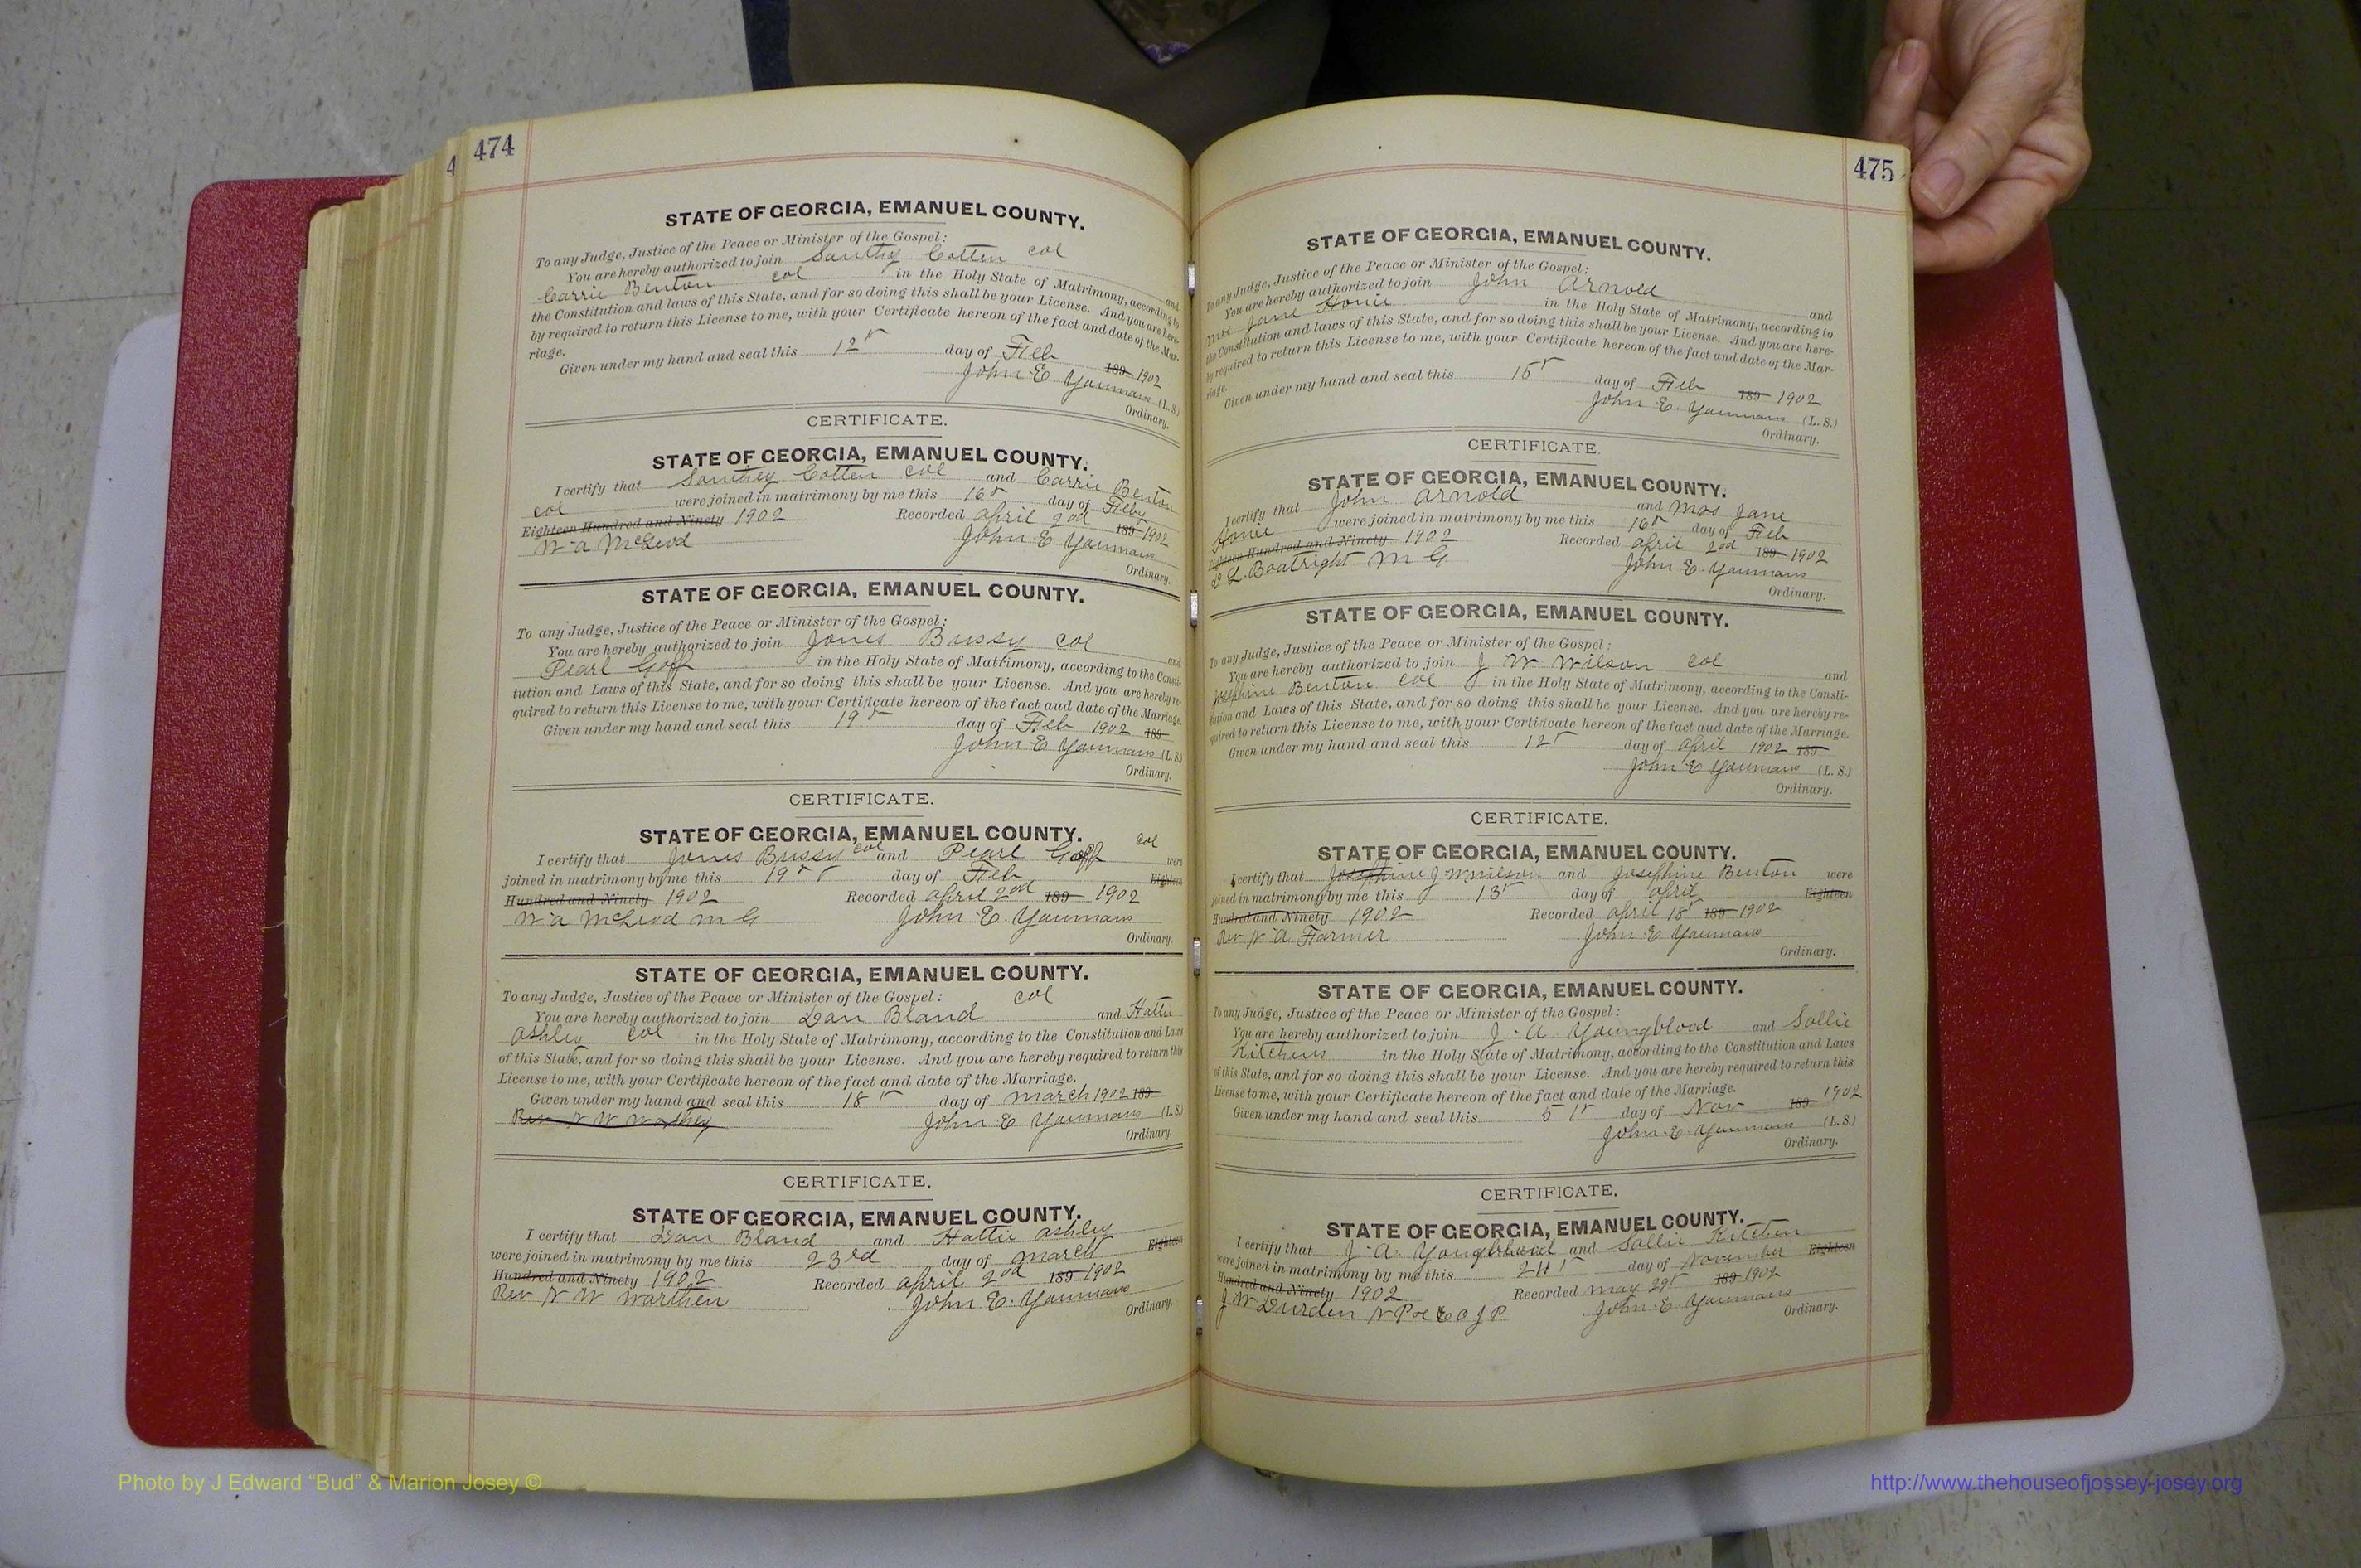 474
4
STATE OF GEORGIA, EMANUEL COUNTY.
To any Judge, Justice of the Peace or Minister of the Gospel:
You are hereby authorized to join Southy Cotten col and
Carrie Benton col in the Holy State of Matrimony, according to
the Constitution and laws of this State, and for so doing this shall be your License. And you are here-
by required to return this License to me, with your Certificate hereon of the fact and date of the Mar-
riage.
Given under my hand and seal this 12" day of Feb 189 1902
John E. Youmans (L. S.)
Ordinary.
CERTIFICATE.
STATE OF GEORGIA, EMANUEL COUNTY.
I certify that Southy Cotten col and Carrie Benton
col were joined in matrimony by me this 16" day of Feby
Eighteen Hundred and Ninety 1902 Recorded April 2nd 189 1902
W a McLeod John E Youmans
Ordinary.
STATE OF GEORGIA, EMANUEL COUNTY.
To any Judge, Justice of the Peace or Minister of the Gospel:
You are hereby authorized to join Jones Bussy col and
Pearl Goff in the Holy State of Matrimony, according to the Consti-
tution and Laws of this State, and for so doing this shall be your License. And you are hereby re-
quired to return this License to me, with your Certificate hereon of the fact aud date of the Marriage.
Given under my hand and seal this 19" day of Feb 1902 189
John E Youmans (L. S.)
Ordinary.
CERTIFICATE.
STATE OF GEORGIA, EMANUEL COUNTY.
I certify that Jones Bussy col and Pearl Goff col were
joined in matrimony by me this 19" day of Feb Eighteen
Hundred and Ninety 1902 Recorded April 2nd 189 1902
W a McLeod M G John E. Youmans
Ordinary.
STATE OF GEORGIA, EMANUEL COUNTY.
To any Judge, Justice of the Peace or Minister of the Gospel: col
You are hereby authorized to join Dan Bland and Hattie
Ashley col in the Holy State of Matrimony, according to the Constitution and Laws
of this State, and for so doing this shall be your License. And you are hereby required to return this
License to me, with your Certificate hereon of the fact and date of the Marriage.
Given under my hand and seal this 18" day of March 1902 189
Rev N W John E Youmans (L. S.)
Ordinary.
CERTIFICATE.
STATE OF GEORGIA, EMANUEL COUNTY.
I certify that Dan Bland and Hattie Ashley
were joined in matrimony by me this 23rd day of March Eighteen
Hundred and Ninety 1902 Recorded April 2nd 189 1902
Rev N W Warthen John E. Youmans
Ordinary.
475
STATE OF GEORGIA, EMANUEL COUNTY.
To any Judge, Justice of the Peace or Minister of the Gospel:
You are hereby authorized to join John Arnold and
Mrs Jane in the Holy State of Matrimony, according to
the Constitution and laws of this State, and for so doing this shall be your License. And you are here-
by required to return this License to me, with your Certificate hereon of the fact and date of the Mar-
riage.
Given under my hand and seal this 15" day of Feb 189 1902
John E. Youmans (L. S.)
Ordinary.
CERTIFICATE.
STATE OF GEORGIA, EMANUEL COUNTY.
I certify that John Arnold and Mrs Jane
were joined in matrimony by me this 16" day of Feb
Eighteen Hundred and Ninety 1902 Recorded April 2nd 189 1902
L. Boatright M G John E. Youmans
Ordinary.
STATE OF GEORGIA, EMANUEL COUNTY.
To any Judge, Justice of the Peace or Minister of the Gospel:
You are hereby authorized to join J W Wilson col and
Josephine Benton col in the Holy State of Matrimony, according to the Consti-
tution and Laws of this State, and for so doing this shall be your License. And you are hereby re-
quired to return this License to me, with your Certificate hereon of the fact aud date of the Marriage.
Given under my hand and seal this 12" day of April 1902 189
John E Youmans (L. S.)
Ordinary.
CERTIFICATE.
STATE OF GEORGIA, EMANUEL COUNTY.
I certify that Josephine J W Wilson and Josephine Benton were
joined in matrimony by me this 13" day of April Eighteen
Hundred and Ninety 1902 Recorded April 18" 189 1902
Rev N A Farmer John E Youmans
Ordinary.
STATE OF GEORGIA, EMANUEL COUNTY.
To any Judge, Justice of the Peace or Minister of the Gospel:
You are hereby authorized to join J. A. Youngblood and Sallie
Kitchens in the Holy State of Matrimony, according to the Constitution and Laws
of this State, and for so doing this shall be your License. And you are hereby required to return this
License to me, with your Certificate hereon of the fact and date of the Marriage.
Given under my hand and seal this day of Nov 189 1902
John E. Youmans (L. S.)
Ordinary.
CERTIFICATE.
STATE OF GEORGIA, EMANUEL COUNTY.
I certify that J. A. Youngblood and Sallie Kitchen
were joined in matrimony by me this 24" day of November Eighteen
Hundred and Ninety 1902 Recorded May 29" 189 1902
J. W Durden N P & Ex O J P John E. Youmans
Ordinary.
Photo by J Edward “Bud” & Marion Josey ©
http://www.thehouseofjossey-josey.org